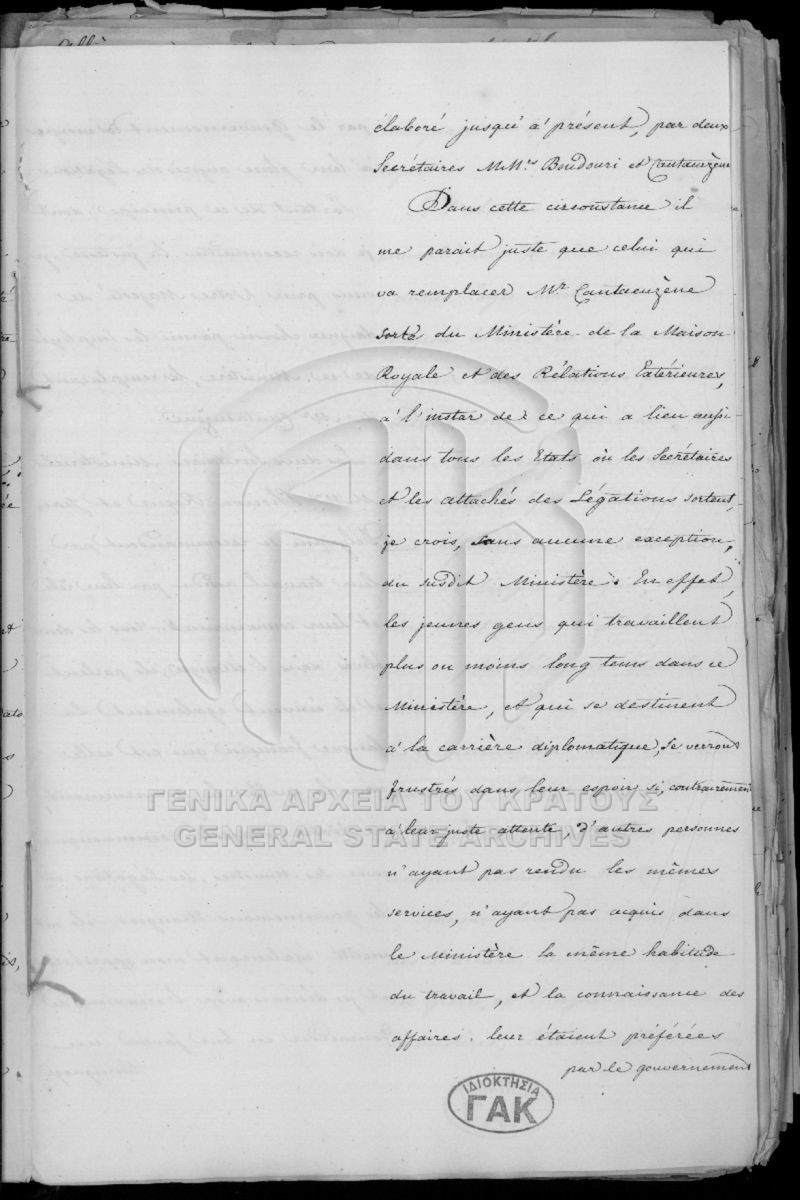 élaboré jusqu'à présent, par deux
Secrétaires M.Mrs Boudouri et Cantacuzène
Dans cette circonstance il
me parait juste que celui qui
va remplacer Mr Cantacuzène
sorte du Ministère de la Maison
Royale et des Rélations Extérieures,
à l'instar de ce qui a lieu aussi
dans tous les Etats où les Secrétaires
et les attachés des Légations sortent,
je crois, sans aucune exception,
du susdit Ministère. En effet,
les jeunes gens qui travaillent
plus ou moins long tems dans ce
Ministère, et qui se destinent
à la carrière diplomatique, se verront
frustrés dans leur espoir si, contrairement
à leur juste attente, d'autres personnes
n'ayant pas rendu les mêmes
services, n'ayant pas acquis dans
le Ministère la même habitude
du travail, et la connaissance des
affaires, leur étaient préférées
par le gouvernement
ΓΕΝΙΚΑ ΑΡΧΕΙΑ ΤΟΥ ΚΡΑΤΟΥΣ
GENERAL STATE ARCHIVES
ΙΔΙΟΚΤΗΣΙΑ
ΓΑΚ